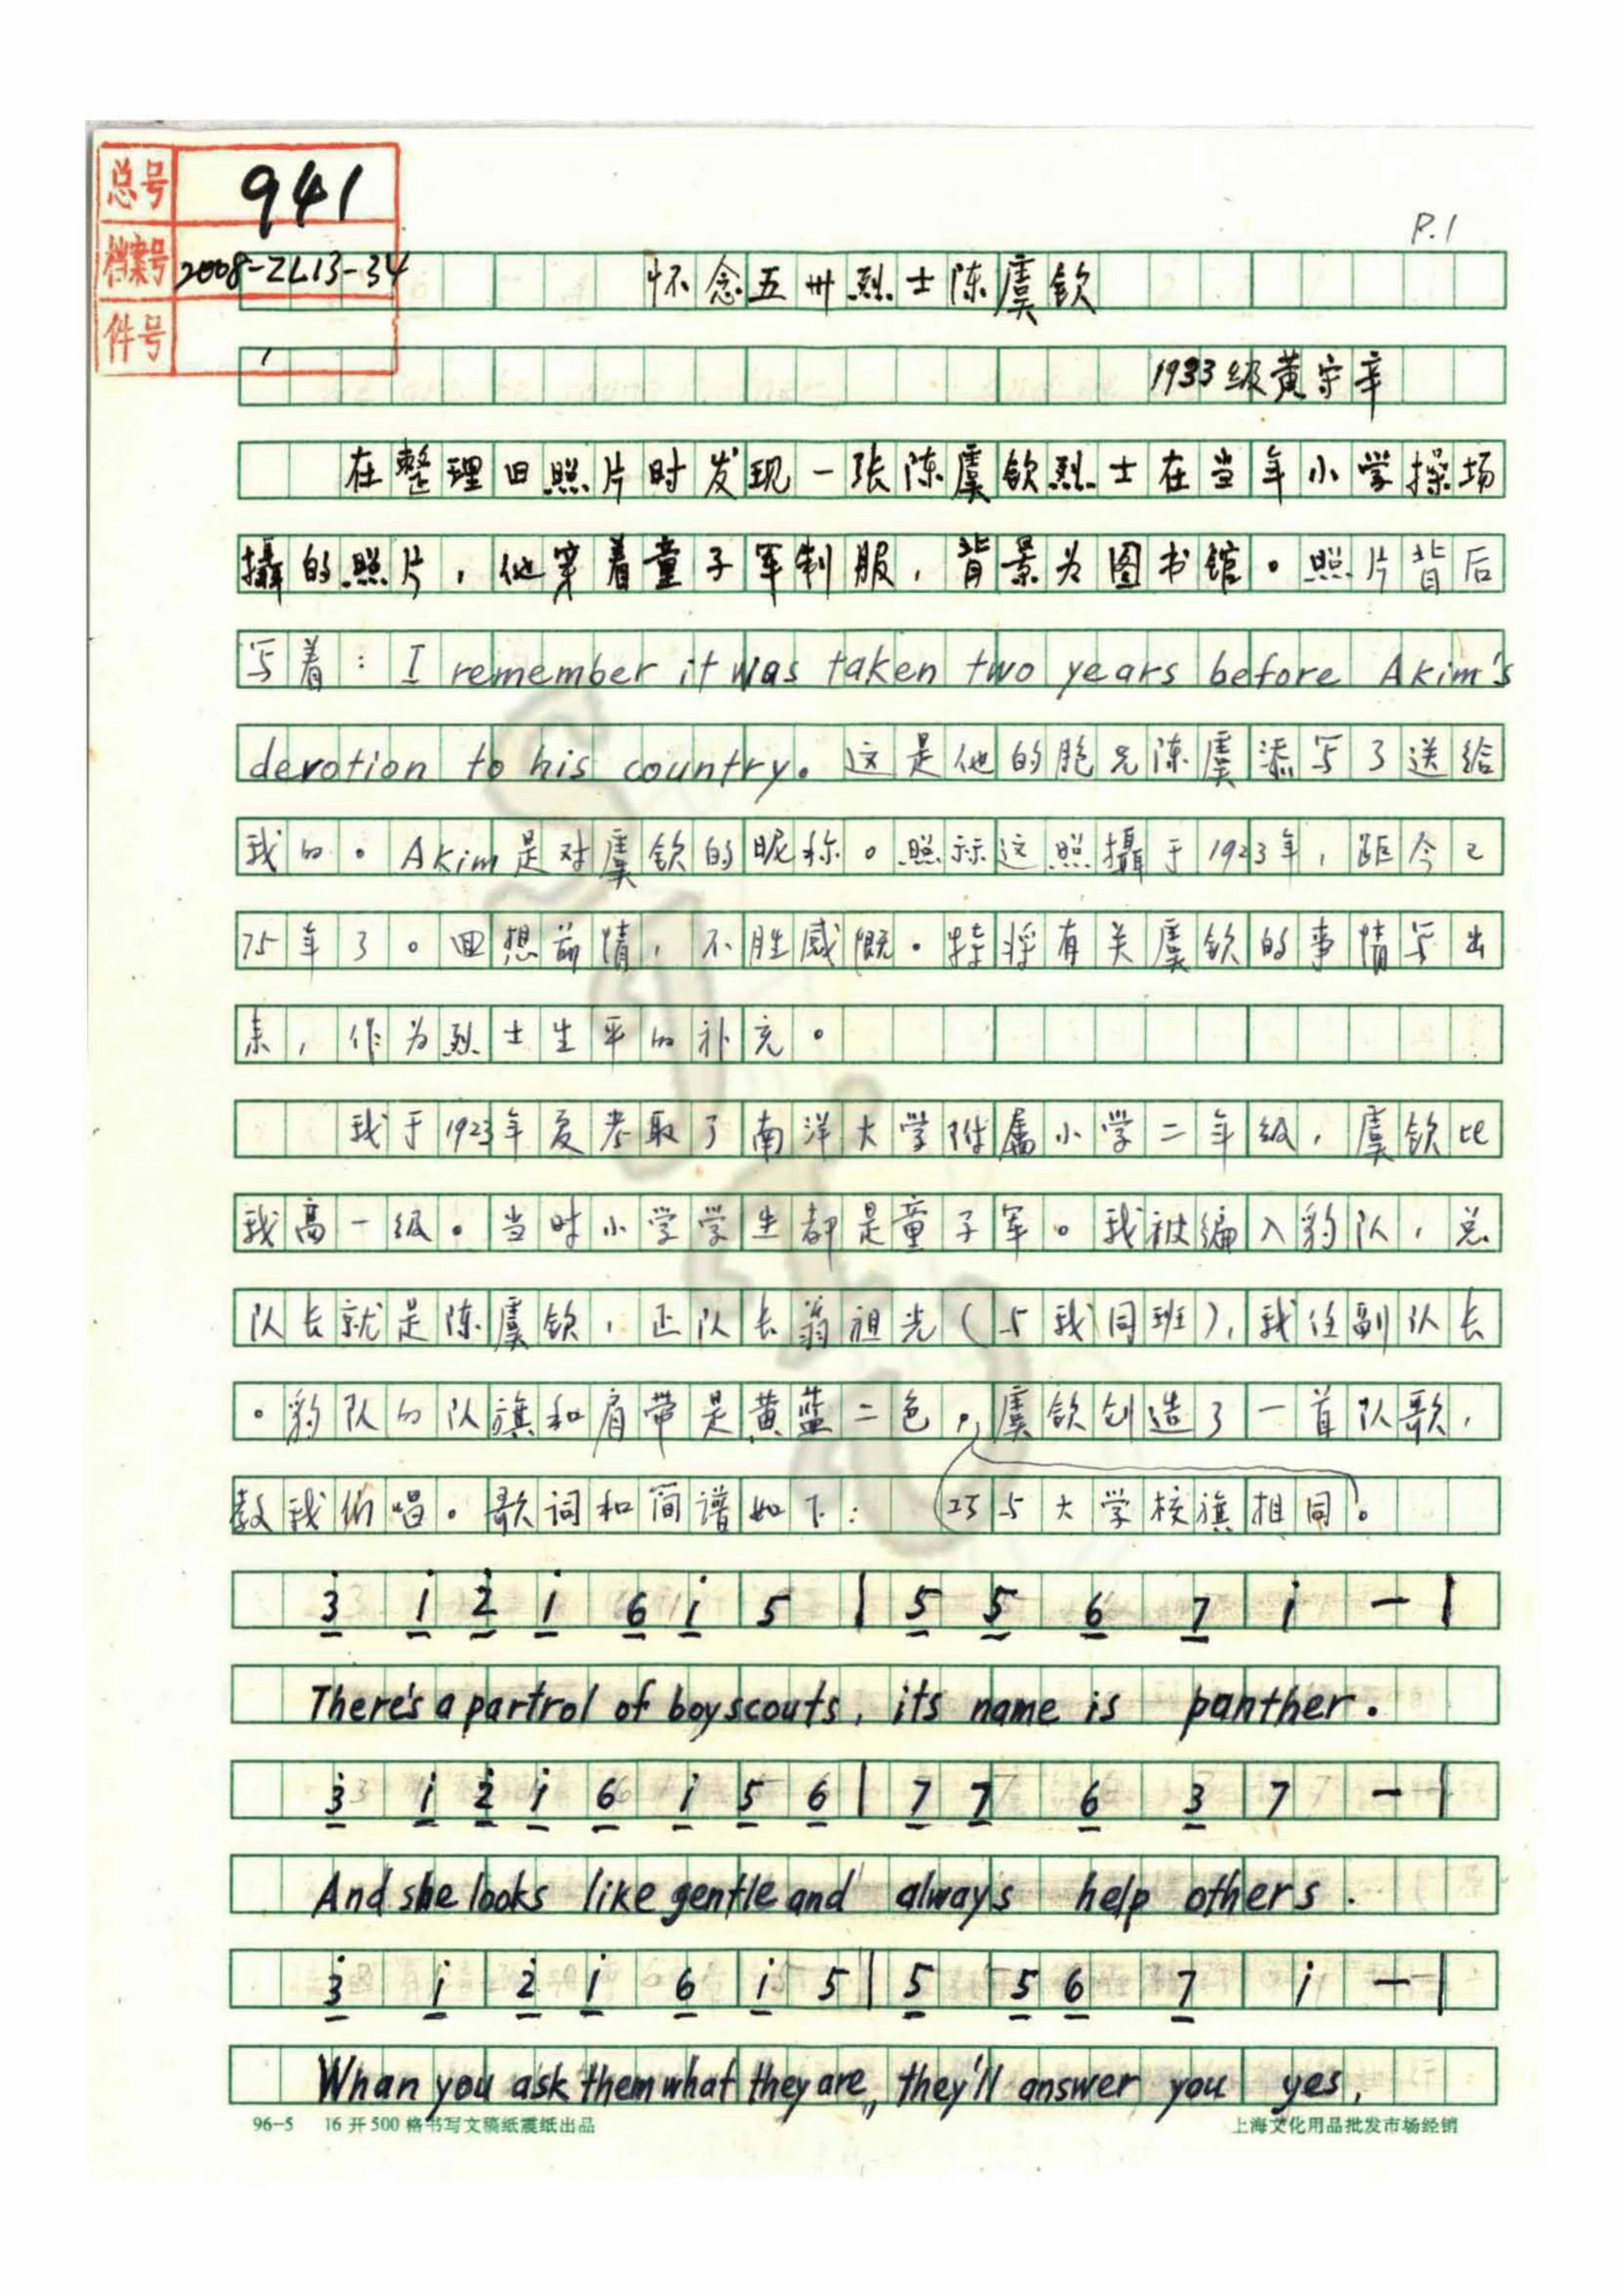 总号 941
档案号 2008-ZL13-34
件号 1
P.1
怀念五卅烈士陈虞钦
1933级黄宗辛
在整理旧照片时发现一张陈虞钦烈士在当年小学操场
摄的照片，他穿着童子军制服，背景为图书馆。照片背后
写着：I remember it was taken two years before Akim's
devotion to his country。这是他的胞兄陈虞添写了送给
我的。Akim是对虞钦的昵称。照示这照摄于1923年，距今已
75年了。回想前情，不胜感慨。特将有关虞钦的事情写出
来，作为烈士生平的补充。
我于1923年夏考取了南洋大学附属小学二年级，虞钦比
我高一级。当时小学学生都是童子军。我被编入豹队，总
队长就是陈虞钦，正队长翁祖光（与我同班），我任副队长
。豹队的队旗和肩带是黄蓝二色，虞钦创造了一首队歌，
教我们唱。歌词和简谱如下：（巧与大学校旗相同）。
3̇ 1̇ 2̇ 1̇ 6 1̇ 5 | 5 5 6 7 1̇ — |
There's a partrol of boyscouts, its name is panther.
3̇ 1̇ 2̇ 1̇ 6 1̇ 5 6 | 7 7 6 3 7 — |
And she looks like gentle and always help others.
3̇ 1̇ 2̇ 1̇ 6 1̇ 5 | 5 5 6 7 1̇ — |
Whan you ask them what they are,, they'll answer you yes,
96-5 16开500格书写文稿纸震纸出品 上海文化用品批发市场经销